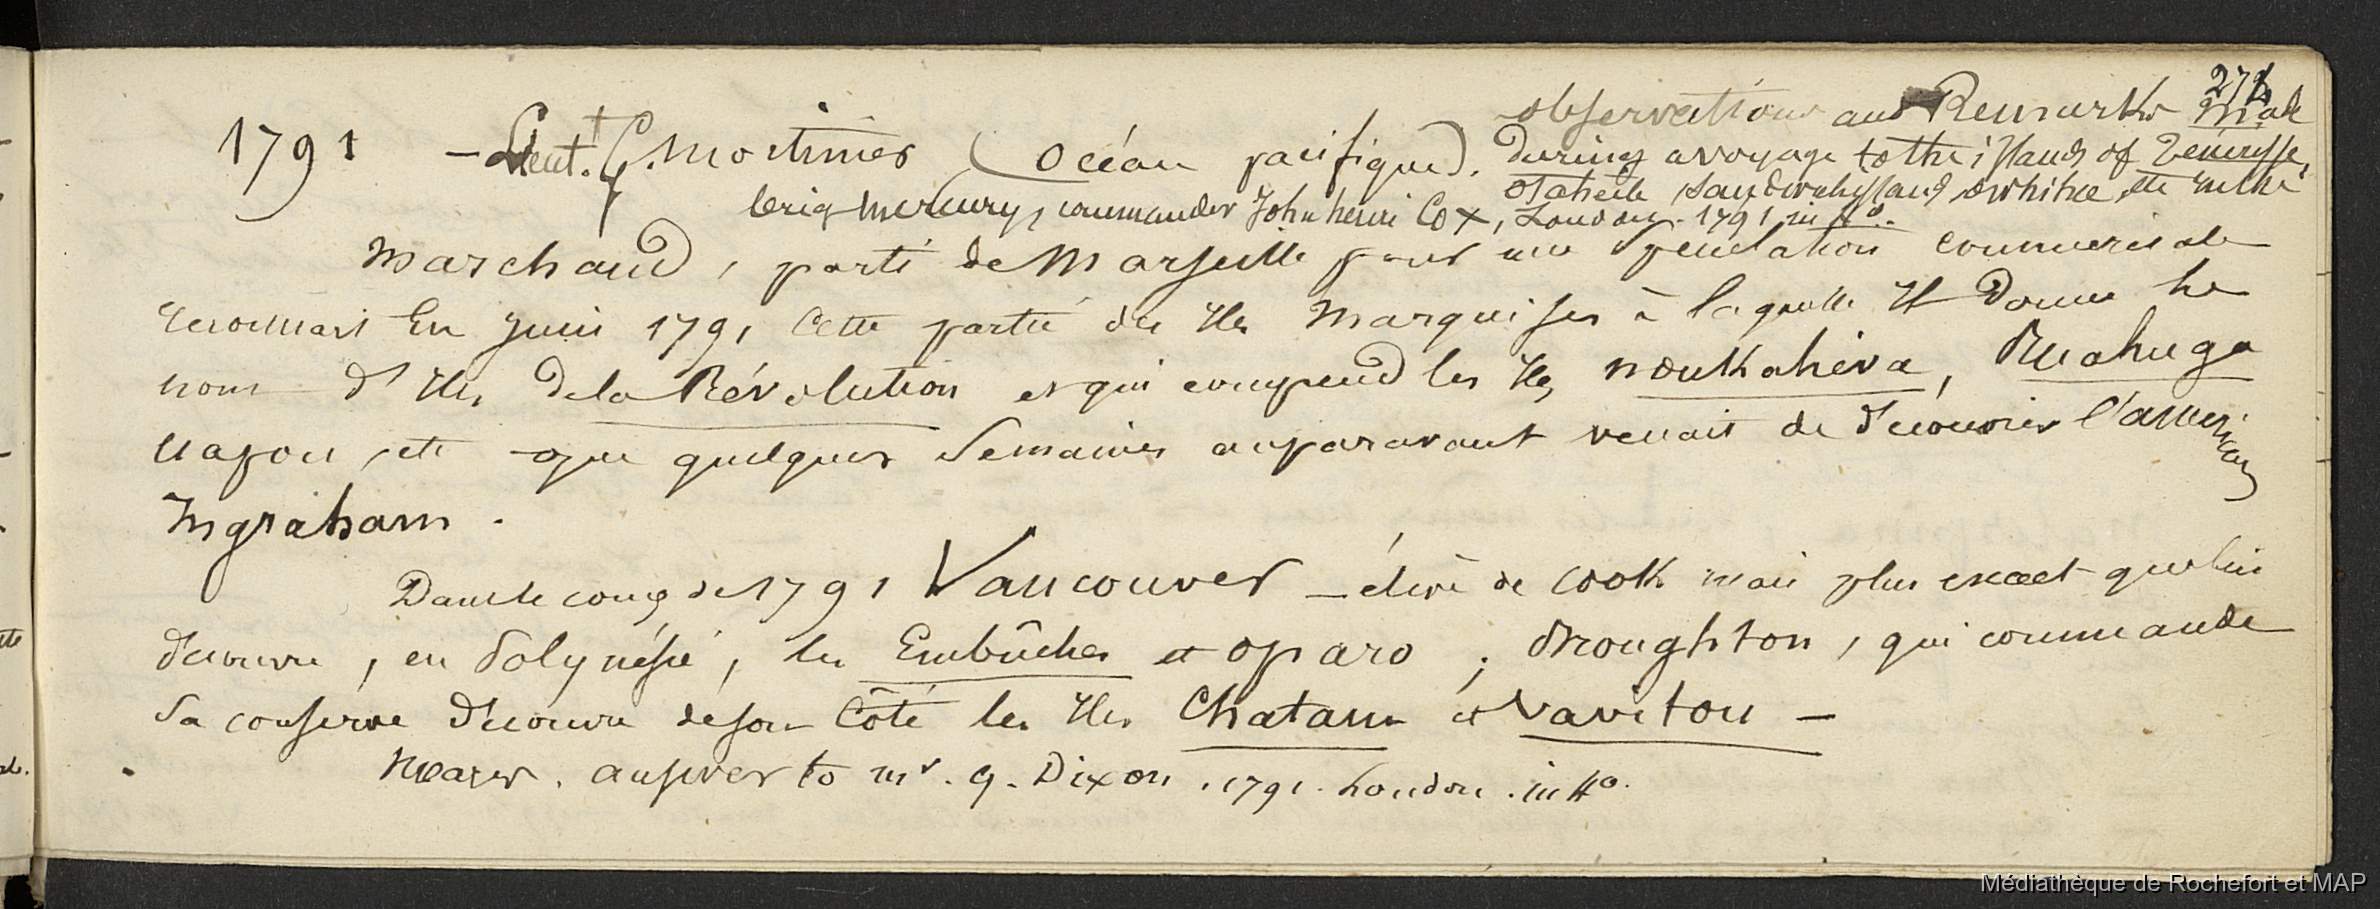 271
observations and Remarks made
1791 - Lieut. G. Mortimer (Océan pacifique). during a voyage to the islands of Teneriffe,
otaheite Sandwich island owhihee, etc in the
brig Mercury, commander John henri Cox, London. 1791 in 4o.
Marchand, parti de Marseille pour une spéculation commerciale
reconnait En juin 1791 cette partie des Iles Marquises à laquelle Il donne le
nom d'Iles de la Révolution et qui comprend les Iles noukahiva, Ruahuga
uapou, etc que quelques Semaines auparavant venait de découvrir l'américain
Ingraham.
Dans le courg de 1791 Vancouver - élève de Cook mais plus exact que lui
découvre, en Polynésie, les Embûches et oparo; Broughton, qui commande
sa conserve découvre de son Côté les Iles Chatam et Vavitou -
Mears. answer to mr. g. Dixon. 1791. London. in 4o.
Médiathèque de Rochefort et MAP